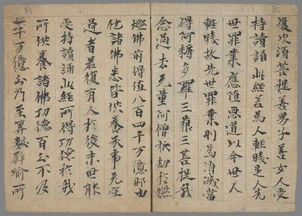 復次須菩提善男子善女人受
持讀誦此經若為人輕賤是人先
世罪業應墮惡道以今世人
輕賤故先世罪業則為消滅當
得阿耨多羅三藐三菩提我
念過去无量阿僧祇劫於然
燈佛前得值八百四千万億那由
他諸佛悉皆供養承事无空
過者若復有人於後末世能
受持讀誦此經所得功德於我
所供養諸佛功德百分不及
一千万億分乃至算數譬喻所